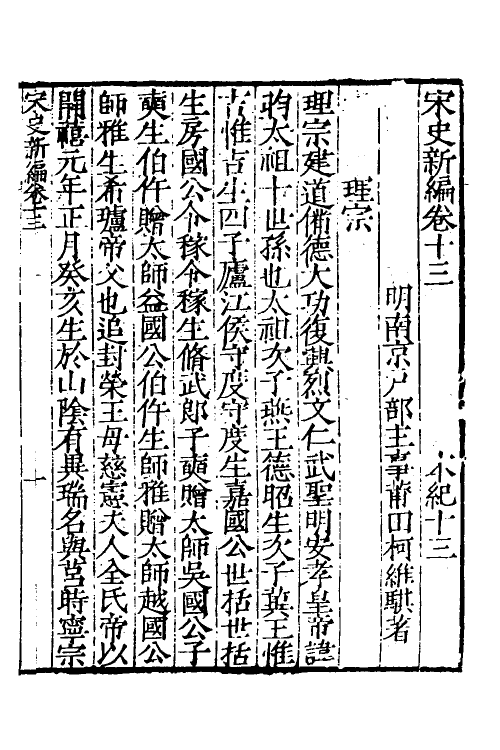 宋史新編卷十三
本紀十三
明南京戸部主事莆田柯維騏著
理宗
理宗建道備德大功復興烈文仁武聖明安孝皇帝諱
昀太祖十世孫也太祖次子燕王德昭生次子冀王惟
吉惟吉生四子廬江侯守度守度生嘉國公世括世括
生房國公令稼令稼生脩武郎子奭贈太師吳國公子
奭生伯仵贈太師益國公伯仵生師雅贈太師越國公
師雅生希瓐帝父也追封榮王母慈憲夫人全氏帝以
開禧元年正月癸亥生於山陰有異瑞名與莒時寧宗
宋史新編卷十三
一